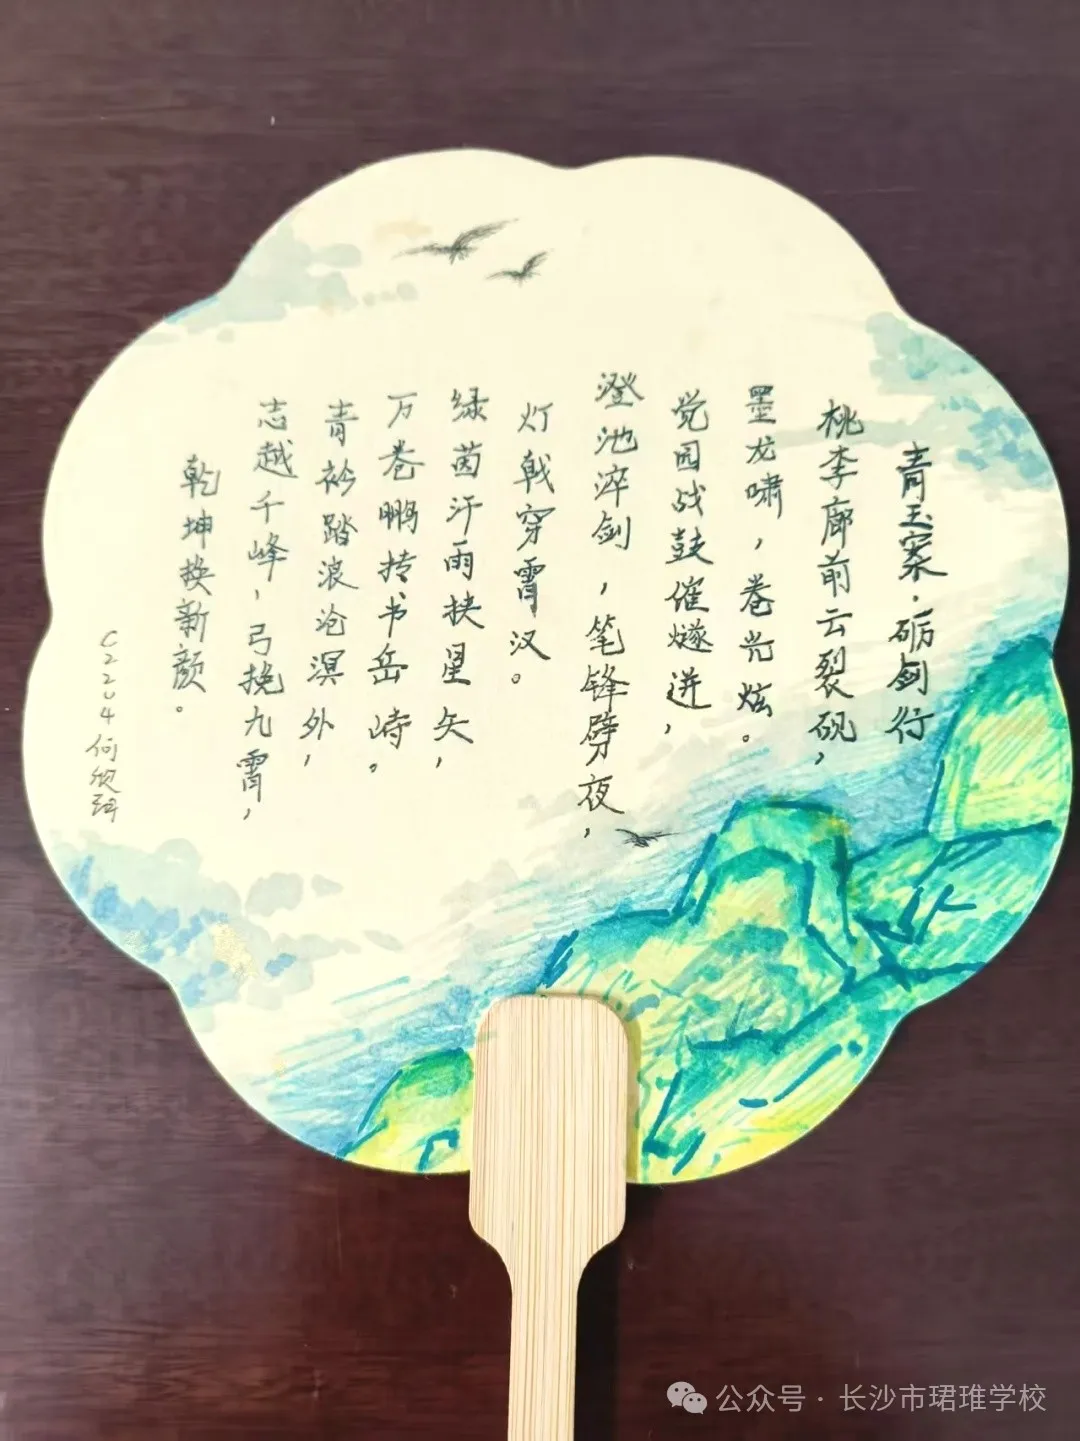 青玉案·砺剑行
桃李廊前云裂砚，
墨龙啸，卷光炫。
觉园战鼓催燧迸，
澄池淬剑，笔锋劈夜，
灯戟穿霄汉。
绿茵汗雨挟星矢，
万卷鹏抟书岳峙。
青衫踏浪沧溟外，
志越千峰，弓挽九霄，
乾坤换新颜。
C2204何欣
公众号·长沙市珺琟学校